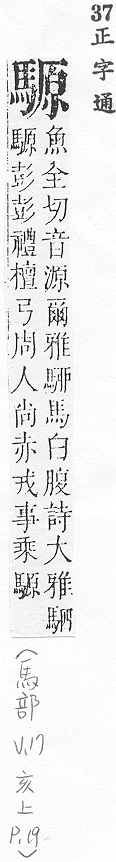 37正字通
騵 魚全切音源爾雅駵馬白腹詩大雅駟
騵彭彭禮檀弓周人尚赤戎事乘騵
(馬部 V.17 亥上 P.19)